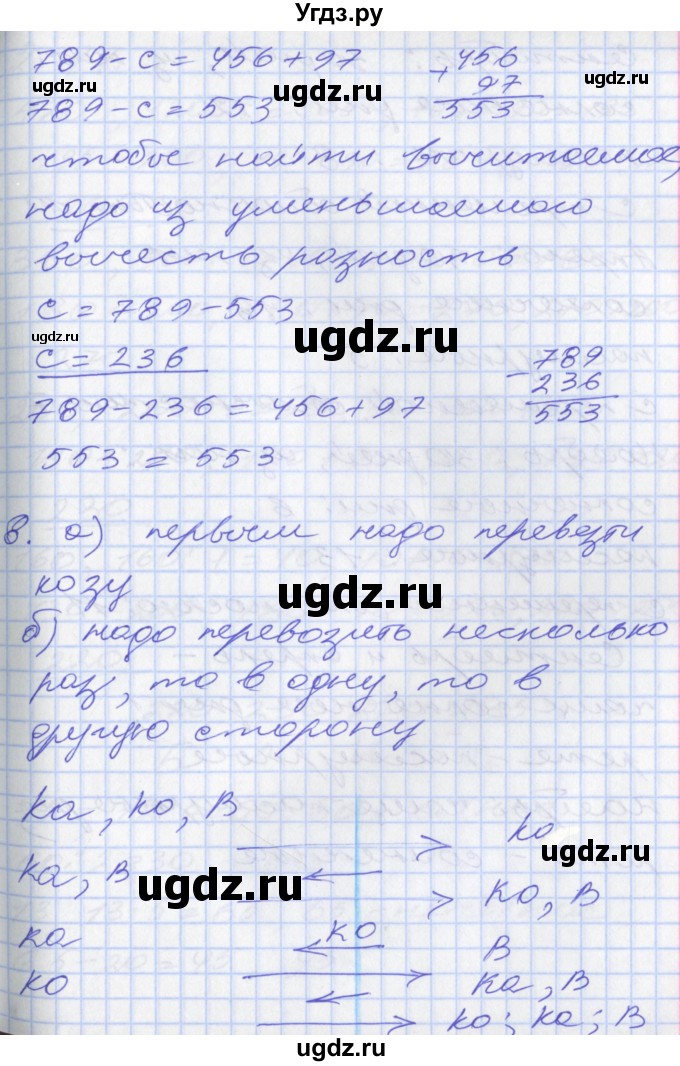 Угдз.ру
789-с = 456+97
456
+ 97
553
ugdz.ru
ugdz.ru
ugdz.ru
789-с = 553
чтобы найти вычитаемое,
надо из уменьшаемого
вычесть разность
с = 789-553
ugdz.ru
ugdz.ru
с = 236
789
- 236
553
789-236 = 456+97
553 = 553
8. а) первым надо перевезти
козу
ugdz.ru
б) надо перевозить несколько
раз, то в одну, то в
другую сторону
ка, ко, в
ко
ugdz.ru
ка, в
ugdz.ru
ко, в
ка
ко
в
ко
ка, в
ко; ка; в
ugdz.ru